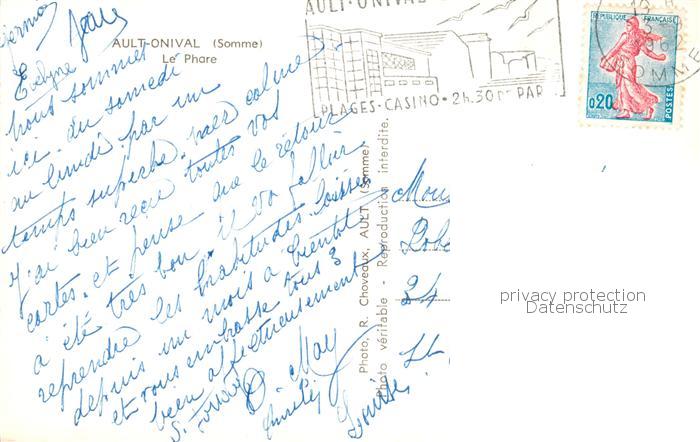 AULT-ONIVAL (Somme)
Le Phare
AULT-ONIVAL
PLAGES-CASINO • 2h.30 DE PAR
RÉPUBLIQUE FRANÇAISE
0,20
POSTES
SOMME
Evelyne Jean
nous sommes
ici du samedi
au lundi par un
temps superbe. mer calme
J'ai bien reçu toutes vos
cartes. et pense que le retour
a été très bon il va falloir
reprendre les habitudes laissées
depuis un mois a bientôt
et vous embrasse tous 3
bien affectueusement
Louise
Photo, R. Chaveaux, AULT (Somme)
Photo véritable - Reproduction interdite.
24
privacy protection
Datenschutz